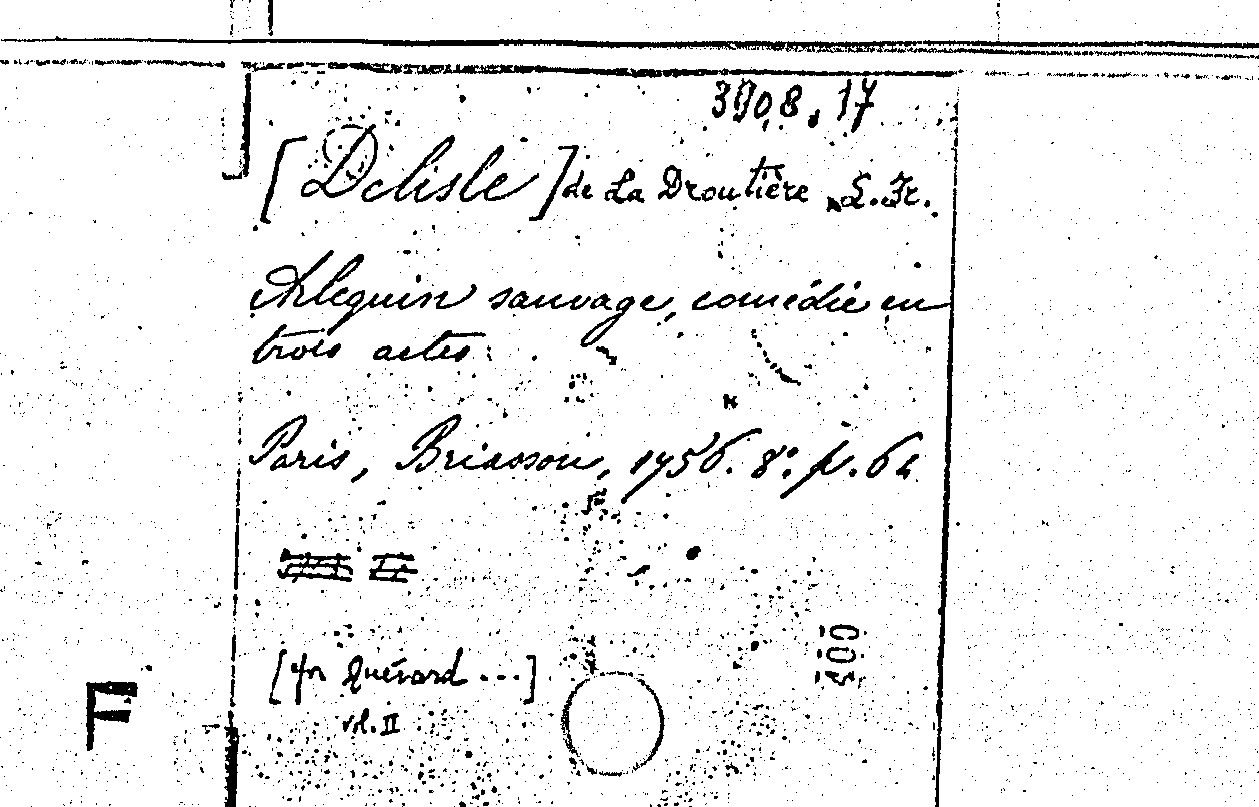 3908.17
[Delisle] de La Droutière, L. Fr.
Arlequin sauvage, comédie en
trois actes.
Paris, Briasson, 1756. 8º. p. 64
[Yn Quérard ...]
vol. II
500
F